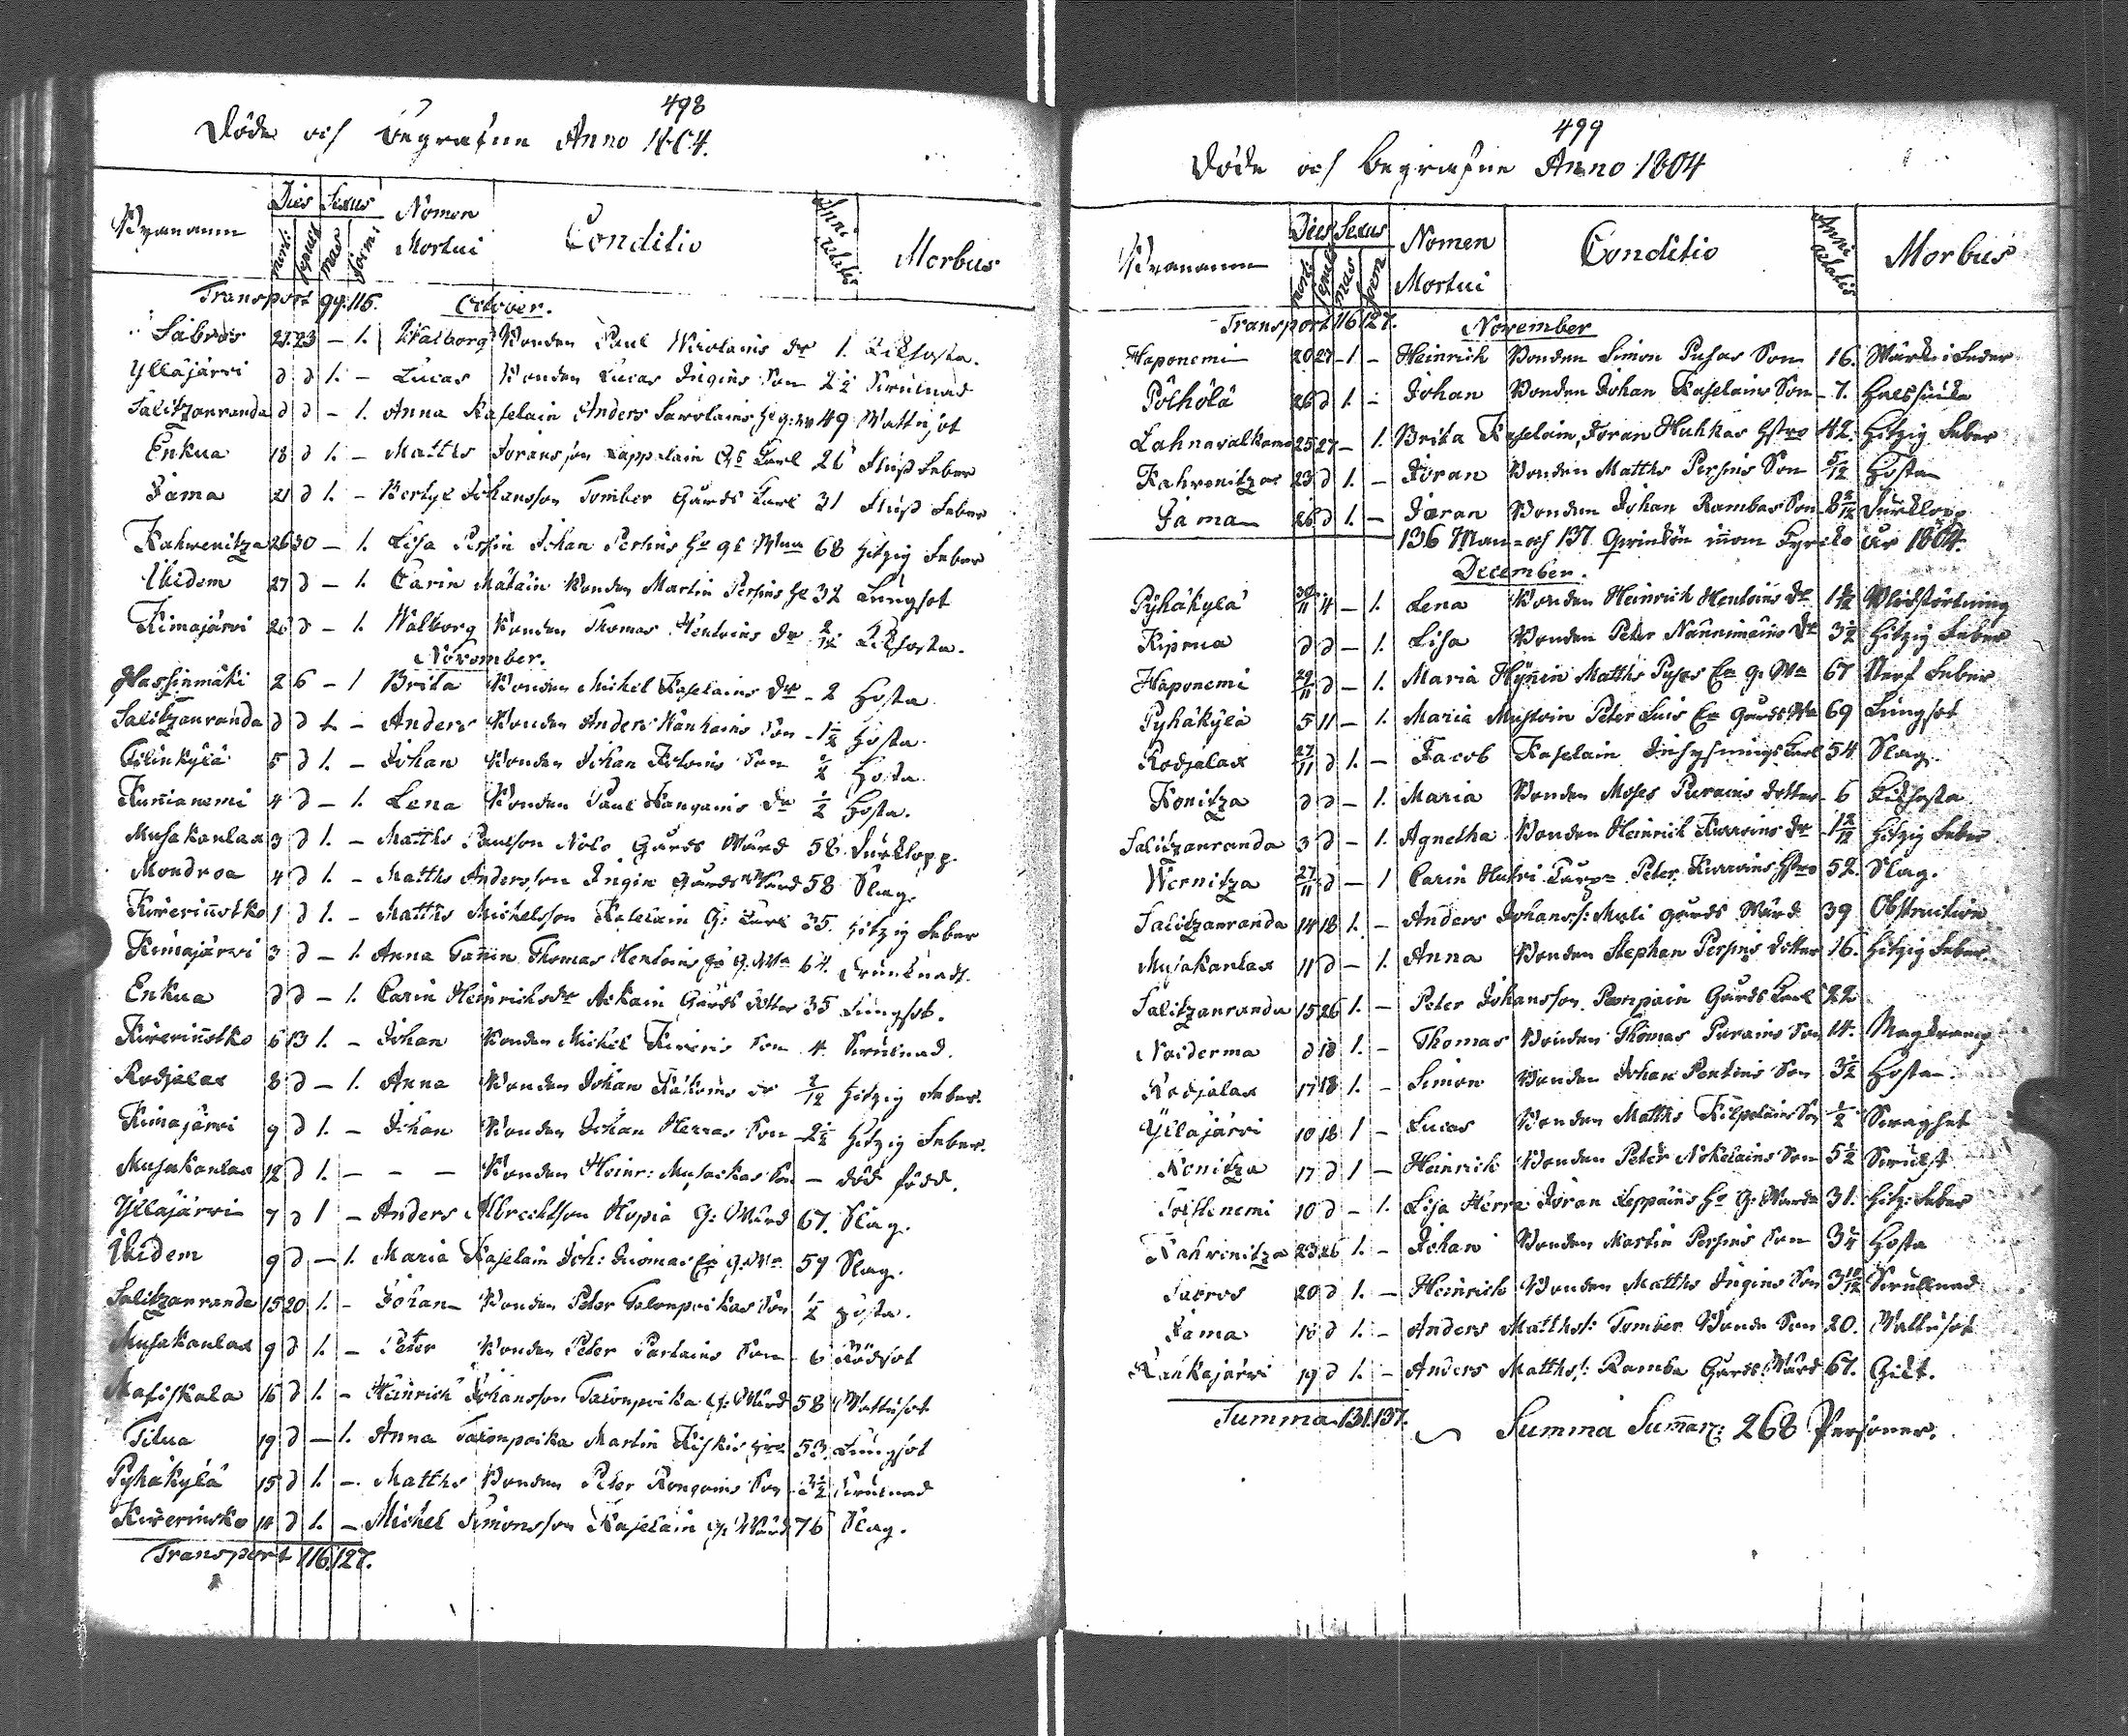 498
Döde och Begrafne Anno 1804.
Byanamn Dies Sexus Nomen Mortui Conditio Anni ætatis Morbus
morti sepult mas foem:
Transport 99. 115. October.
Sabros 21. 23 – 1. Walborg Bonden Paul Nirolains dr 1. Kikhosta.
Ylläjärvi d d 1. – Lucas Bonden Lucas Ingins Son 2 1/2 Strulnad
Salitzanranda d d – 1. Anna Kaselain Anders Savolains 49 Wattusot
Enkua 18 d 1. – Matths Joransson Lappalain Karl 26 Fluss Feber
Jama 21 d 1. – Bertil Johansson Tomber Gårds Karl 31 Fluss Feber
Kahrenitza 26 30 – 1. Lisa Persin Johan Persins 68 hitzig Feber
Ibidem 27 d – 1. Carin Matain Bonden Martin Persins 32 Lungsot
Kimajärvi 26 d – 1. Walborg Bonden Thomas Hentoins dr 2/12 Kikhosta.
November.
Hassinmäki 2 6 – 1 Brita Bonden Michel Kaselains dr 2 Hosta
Salitzanranda d d 1. – Anders Bonden Anders Wanhains Son 1 1/2 Hosta.
d 1. – Johan Bonden Johan Son 1/2 Hosta.
Kunnianemi 4 d – 1. Lena Bonden Paul Kangains dr 1/2 Hosta.
Musakanlax 3 d 1. – Matths Paulson Nolo Gårds Wärd 58. Durklopp.
Mondroa 4 d 1. – Matths Andersson Ingin Gårds Wärd 58 Slag.
Kirerinstko 1 d 1. – Matths Michelsson G: Karl 35. hitzig Feber
Kimajärvi 3 d – 1. Anna Tanin Thomas Hentoins 64.
Enkua d d – 1. Carin Heinrichsdr Askain Gårds dotter 35 Lungsot.
Kirerinstko 6 13 1. – Johan Bonden Michel Kireris Son 4. Strulnad.
Rodjalax 8 d – 1. Anna Bonden Johan dr 2/12 hitzig Feber.
Kimajärvi 9 d 1. – Johan Bonden Johan Herras Son 2 1/2 hitzig Feber.
Musakanlax 12 d 1. – – – Bonden Heinr: Musackas Son – död född.
Yllajärvi 7 d 1 – Anders Albrechtson Hopia G: Wärd 67. Slag.
Ibidem 9 d – 1. Maria Kaselain Joh: Suomas 59 Slag.
Salitzanranda 15 20 1. – Johan Bonden Peter Talonpoikas Son 1/2 Hosta.
Musakanlax 9 d 1. – Peter Bonden Peter Partains Son 6 Rödsot
Mafiskala 16 d 1. – Heinrich Johansson Talonpoika G: Wärd 58 Wattusot
Tilua 19 d – 1. Anna Talonpoika Martin Kiskis 53. Lungsot
Pyhäkylä 15 d 1. – Matths Bonden Peter Rongains Son 2 1/2 Strulnad
Kirerinsko 14 d 1. – Michel Simonsson Kaselain G: Wärd 76 Slag.
Transport 116. 127.
499
Döde och Begrafne Anno 1804
Byanamn Dies Sexus Nomen Mortui Conditio Anni ætatis Morbus
morti sepult mas foem
Transport 116 127. November
Haponemi 20 27 – 1 – Heinrich Bonden Simon Puhas Son 16.
Pölhölä 26 d 1. – Johan Bonden Johan Kaselains Son 7. Halssiuka
Lahnavalkama 25 27 – 1. Brita Kaselain, Joran Huhkas Hstro 42. Hitzig Feber
Kahrenitza 23 d 1. – Joran Bonden Matths Persins Son 5/12 Hosta
Jama 26 d 1. – Joran Bonden Johan Rambas Son Durklopp
136 Man- och 137 Qvinkön innom Kyrko år 1804.
December.
Pyhäkylä 30/11 4 – 1. Lena Bonden Heinrich Hentoins Dr Blodstörtning
Ripnua d d – 1. Lisa Bonden Peter Nännimäins Dr 3 1/2 Hitzig Feber
Haponemi 29/11 d – 1. Maria Hÿnin Matths Puhas 67 Nerf Feber
Pyhäkylä 5 11 – 1. Maria Mustoin Peter 69 Lungsot
Rodjalax 27/11 d 1. – Jacob Kaselain Karl 54 Slag.
Konitza d d – 1. Maria Bonden Moses Purains dotter 6 Kikhosta
Salitzanranda 3 d – 1. Agnetha Bonden Heinrich Kurvins Dr 1 2/12 Hitzig Feber
Wernitza 27/11 d – 1 Carin Huhri Peter Kurvins Hstro 52. Slag.
Salitzanranda 14 18 1. – Anders Johanss: Muli Gårds Wärd 39 Obstruction
Musakanlax 11 d – 1. Anna Bonden Stephan Persins dotter 16. Hitzig Feber
Salitzanranda 15 26 1. – Peter Johansson Pampain Gårds Karl 22
Noiderma d 18 1. – Thomas Bonden Thomas Purains Son 14.
Rodjalax 17 18 1. – Simon Bonden Johan Pentins Son 3 1/2 Hosta.
Yllajärvi 10 18 1 – Lucas Bonden Matths Kilpelains Son 1/2
Konitza 17 d 1 – Heinrich Bonden Peter Nokelains Son 5 1/2
Toistenemi 10 d – 1. Lisa Herra Joran Leppains 31. Hitz: Feber
Kahrinitza 23 26 1. – Johan Bonden Martin Persins Son 3 1/4 Hosta
Sabros 20 d 1. – Heinrich Bonden Matths Ingins Son 3 10/12 Strulnad
Jama 18 d 1. – Anders Matths: Tomber Bonde Son 20. Wattusot
Kaukajärvi 19 d 1. – Anders Matths: Ramba Gårds Wärd 67. Gikt.
Summa 131. 137. Summa Summar: 268 Personer.